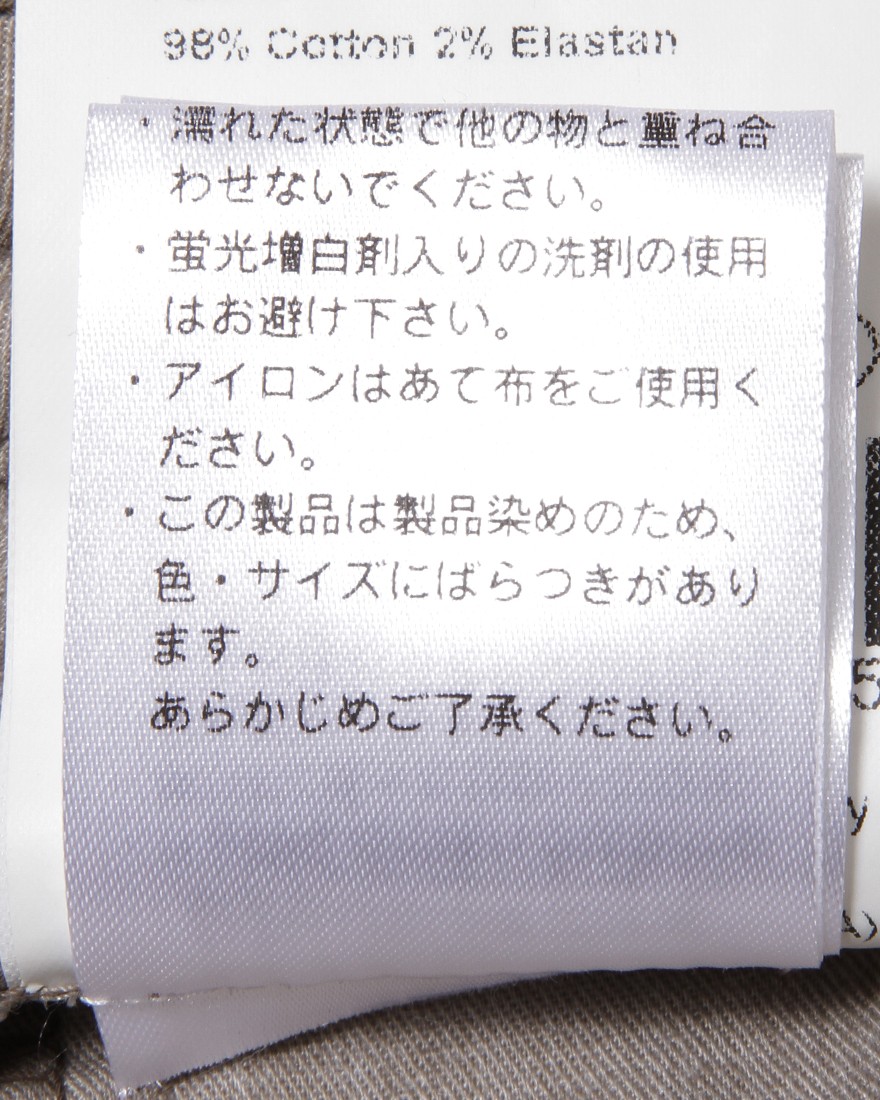 98% Cotton 2% Elastan
・濡れた状態で他の物と重ね合
わせないでください。
・蛍光増白剤入りの洗剤の使用
はお避け下さい。
・アイロンはあて布をご使用く
ださい。
・この製品は製品染めのため、
色・サイズにばらつきがあり
ます。
あらかじめご了承ください。
5
y